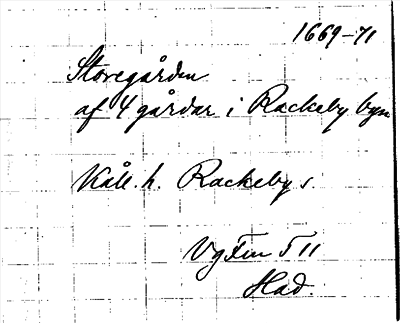 1669-71
Storegården
af 4 gårdar i Rackeby byn
Kåll. h. Rackeby s.
Had.